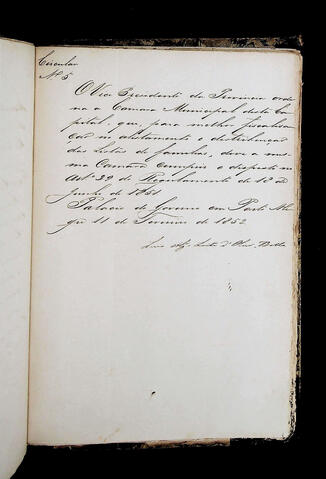 Circular
Nº 5
O Vice Presidente da Provincia orde
na a Camara Municipal desta Ca
pital, que, para melhor fiscalisa
ção no alistamento e distribuição
das Listas de familias, deve a mes
ma Camara cumprir o disposto no
Artº 39 do Regulamento de 18 de
Junho de 1851
Palacio do Governo em Porto Ale
gre 11 de Fevereiro de 1852
Luis Alz. Leite d'Olivª Bello